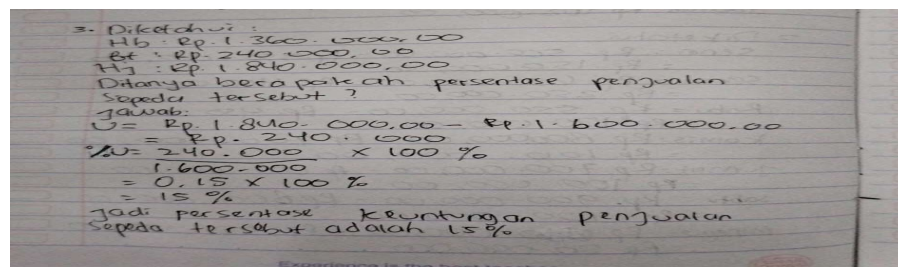 3. Diketahui :
Hb : Rp. 1.360.000,00
Bt : Rp. 240.000,00
Hj : Rp. 1.840.000,00
Ditanya berapakah persentase penjualan
sepeda tersebut ?
Jawab:
U = Rp. 1.840.000,00 – Rp. 1.600.000,00
= Rp. 240.000
%U = 240.000 x 100 %
1.600.000
= 0,15 x 100 %
= 15 %
Jadi persentase keuntungan penjualan
sepeda tersebut adalah 15%
Experience is the best